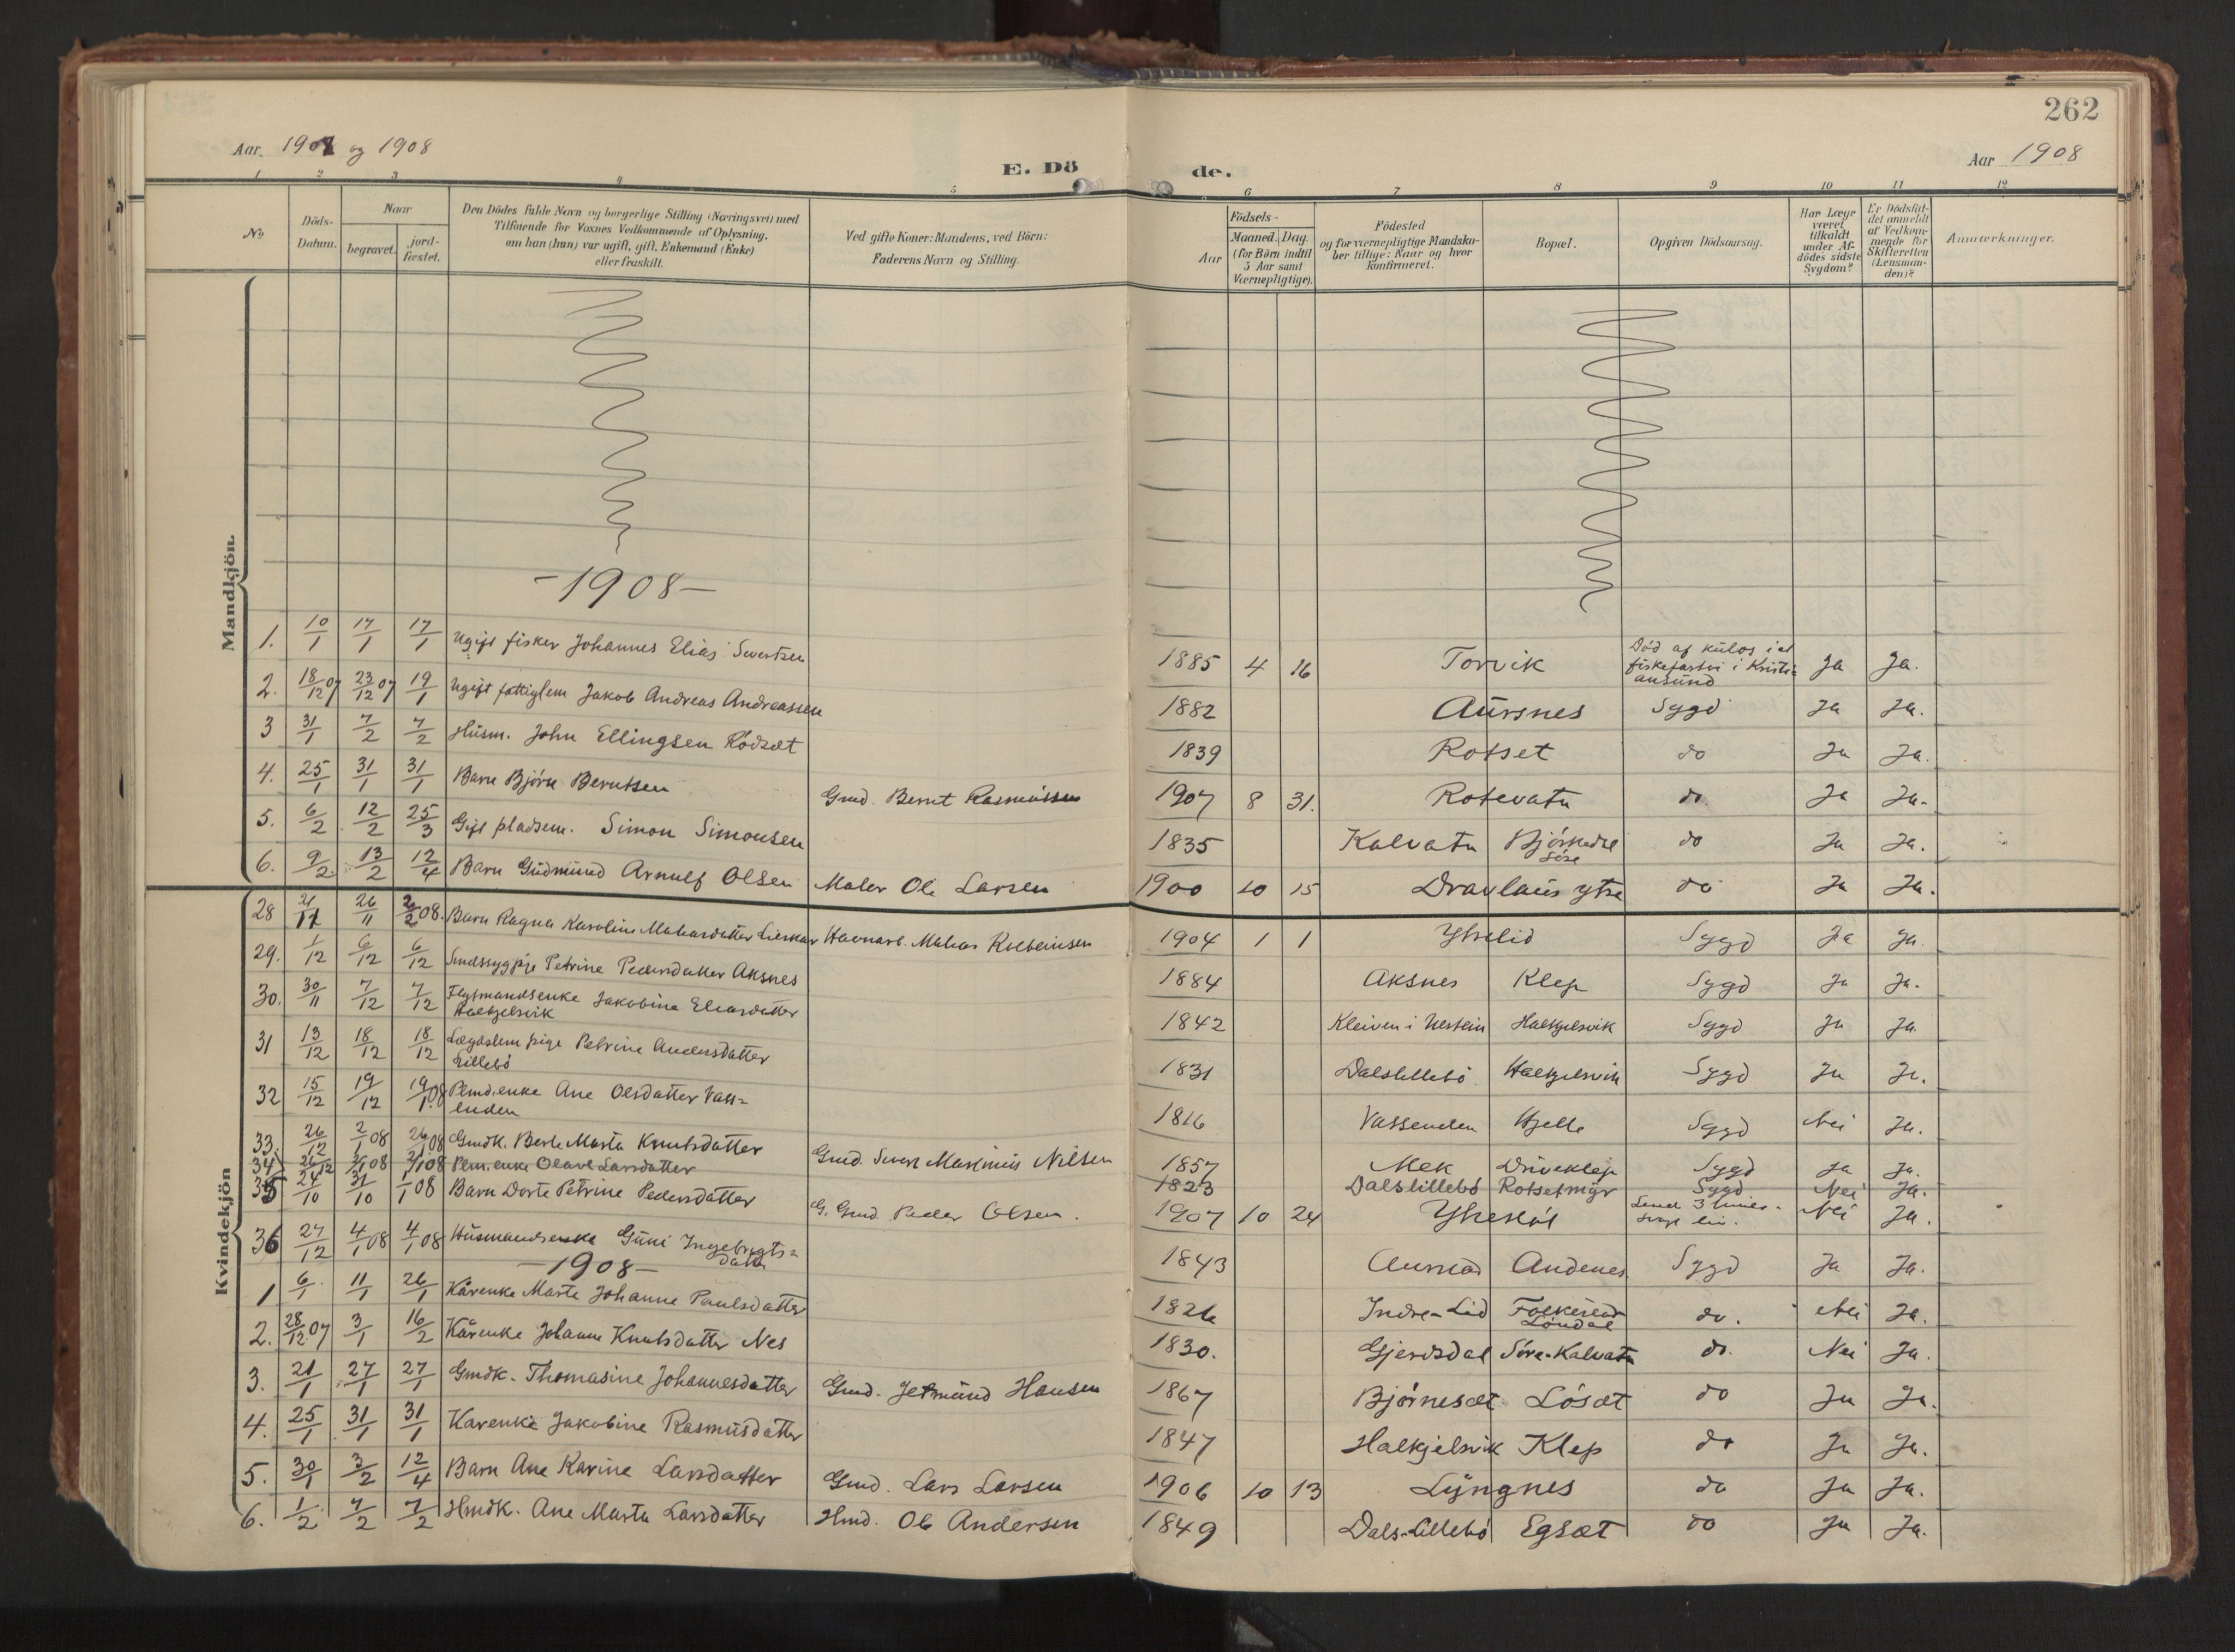 262
Aar. 1907 og 1908
E. Dö de.
Aar 1908
1 2 3 4 5 6 7 8 9 10 11 12
No
Döds-Datum.
Naar
begravet.
jord-fæstet.
Den Dödes fulde Navn og borgerlige Stilling (Næringsvei) med
Tilföiende for Voxnes Vedkommende af Oplysning,
om han (hun) var ugift, gift, Enkemand (Enke)
eller fraskilt.
Ved gifte Koner: Mandens, ved Börn:
Faderens Navn og Stilling.
Födsels-
Aar
Maaned. Dag.
(for Börn indtil
5 Aar samt
Værnepligtige).
Födested
og for værnepligtige Mandska-
ber tillige: Naar og hvor
konfirmeret.
Bopæl.
Opgiven Dödsaarsag.
Har Læge
været
tilkaldt
under Af-
dödes sidste
Sygdom?
Er Dødsfal-
det anmeldt
af Vedkom-
mende for
Skifteretten
(Lensman-
den)?
Anmærkninger.
Mandkjön.
-1908-
1. 10/1 17/1 17/1 Ugift fisker Johannes Elias Sivertsen 1885 4 16 Torvik Død af kulos i et fiskefartøi i Kristiansund Ja Ja.
2. 18/12 07 23/12 07 19/1 Ugift fattiglem Jakob Andreas Andreassen 1882 Aursnes Sygd Ja Ja.
3 31/1 7/2 7/2 Husm. John Ellingsen Rödsæt 1839 Rotset do Ja Ja.
4. 25/1 31/1 31/1 Barn Björn Berntsen Gmd. Bernt Rasmussen 1907 8 31. Rotevatn do. Ja Ja.
5. 6/2 12/2 25/3 Gift pladsem. Simon Simonsen 1835 Kalvatn Björkedal Söre do Ja Ja.
6. 9/2. 13/2 12/4 Barn Gudmund Arnulf Olsen Maler Ole Larsen 1900 10 15 Dravlaus ytre do Ja Ja.
Kvindekjön
28 21/11 26/11 2/2 08. Barn Ragna Karoline Havnarb. 1904 1 1 Ytrelid Sygd Ja Ja.
29. 1/12 6/12 6/12 Sindssyg pige Petrine Pedersdatter Aksnes 1884 Aksnes Klep Sygd Ja Ja.
30. 30/11 7/12 7/12 Jakobine Eliasdatter Halkjelsvik 1842 Kleiven i Halkjelsvik Sygd Ja Ja
31 13/12 18/12 18/12 Lægdslem pige Petrine Andersdatter Lillebö 1831 Dalslillebö Halkjelsvik Sygd Ja Ja.
32 15/12 19/12 19/1 08 Plmd.enke Ane Olsdatter Vass=
enden 1816 Vassenden Hjelle Sygd Nei Ja.
33. 26/12 2/1 08 26/1 08 Gmdk. Berte Marta Knutsdatter Gmd. Sivert Maximus Nilsen 1857 Mek Driveklep Sygd Ja Ja.
34 Plm.enke Olave Larsdatter 1823 Dalslillebö Rotsetmyr Sygd Nei Ja.
35 24/10 31/10 1/1 08 Barn Dorte Petrine Pedersdatter G. Gmd. Peder Olsen. 1907 10 24 Nei Ja.
36 27/12 4/1 08 4/1 08 Husmandsenke Guni Ingebrigts=
datter 1843 Aurstad Andenes Sygd Ja Ja.
-1908-
1 6/1 11/1 26/1 Kårenke Marte Johanne Paulsdatter 1826 Indre-Lid Folkestad Löndal do. Nei Ja.
2. 28/12 07 3/1 16/2 Kårenke Johanne Knutsdatter Nes 1830. Gjerdsdal Söre-Kalvatn do. Nei Ja.
3. 21/1 27/1 27/1 Gmdk. Thomasine Johannesdatter Gmd. Jetmund Hansen 1867 Björnesæt Lösæt do Ja Ja.
4. 25/1 31/1 31/1 Karenke Jakobine Rasmusdatter 1847 Halkjelsvik Klep do Ja Ja.
5. 30/1 3/2 12/4 Barn Ane Karine Larsdatter Gmd. Lars Larsen 1906 10 13 Lyngnes do Ja Ja.
6. 1/2 7/2 7/2 Hmdk. Ane Marta Larsdatter Hmd. Ole Andersen 1849 Dals-Lillebö Egsæt do Ja Ja.